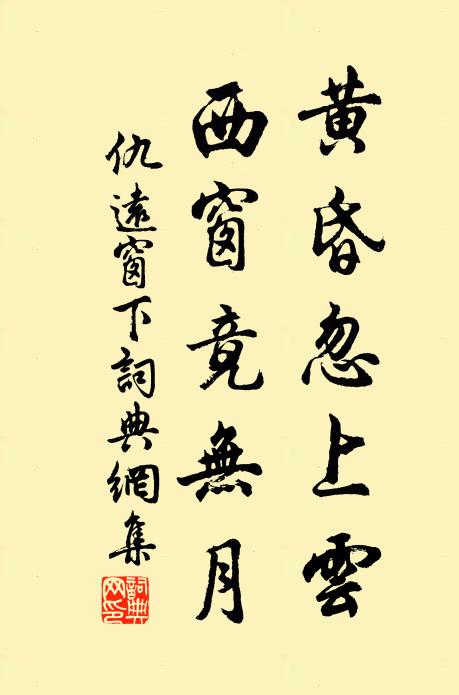 黃昏忽上雲
西窗竟無月
仇遠窗下詞典網集
詞典網印